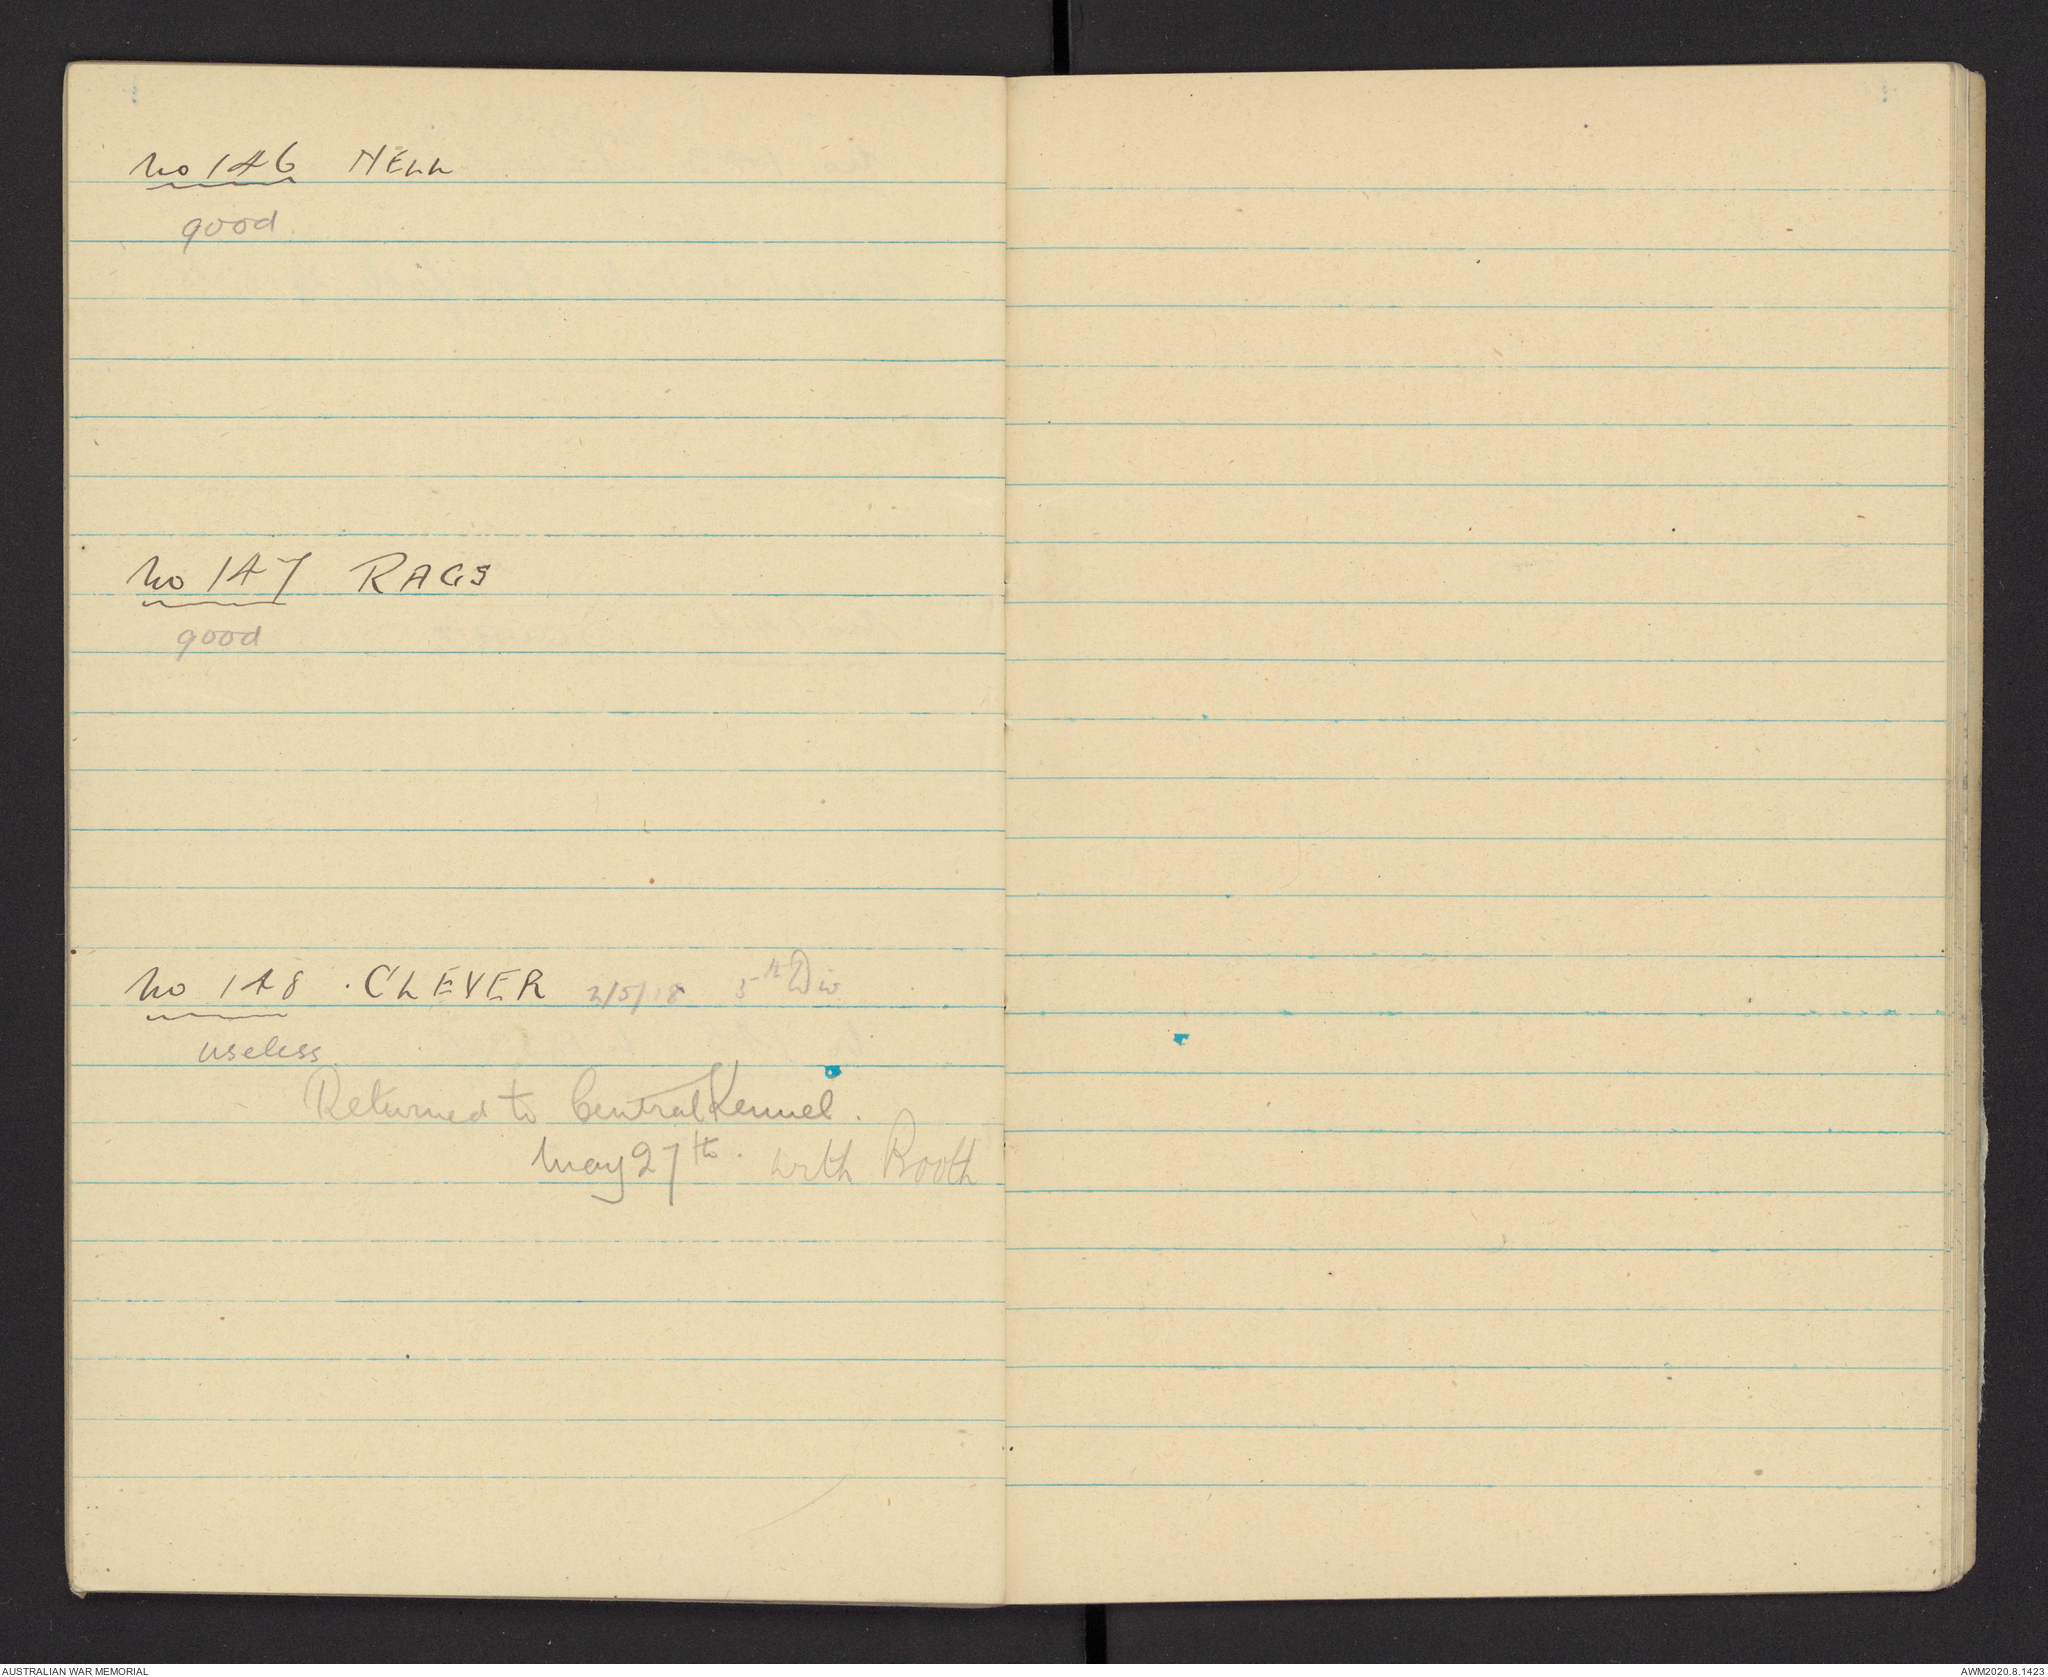 No 146 NELL
good
No 147 RAGS
good
No 148 . CLEVER 2/5/18 5th Div
useless
Returned to Central Kennel.
May 27th. with Booth
AUSTRALIAN WAR MEMORIAL
AWM2020.8.1423